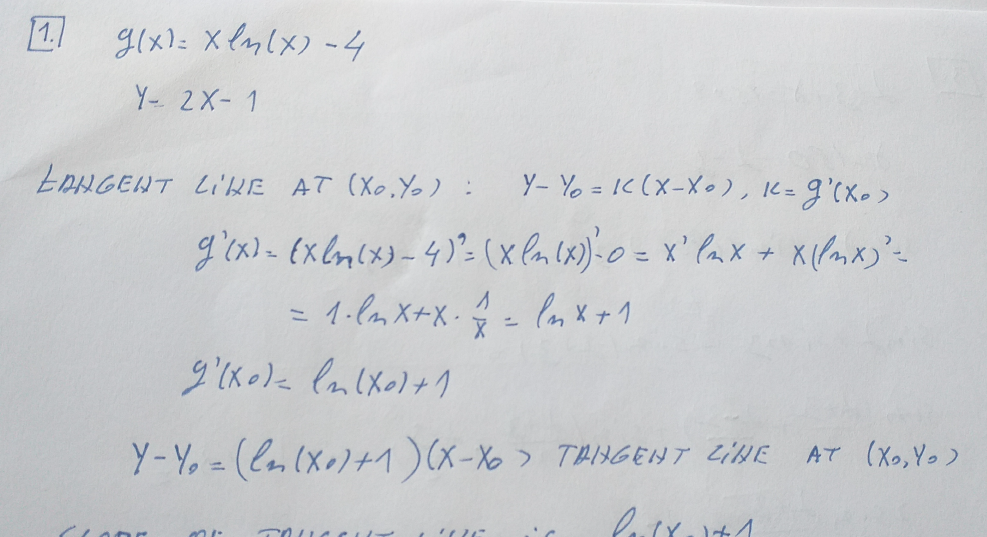 1. g(x)= x ln(x) - 4
y= 2x - 1
TANGENT LINE AT (x0,y0) : y - y0 = k(x-x0), k= g'(x0)
g'(x)= (x ln(x) - 4)' = (x ln(x))' - 0 = x' ln x + x(ln x)' =
= 1·ln x + x · 1/x = ln x + 1
g'(x0)= ln(x0)+1
y-y0 = (ln(x0)+1)(x-x0) TANGENT LINE AT (x0,y0)
SLOPE OF TANGENT LINE is ln(x0)+1